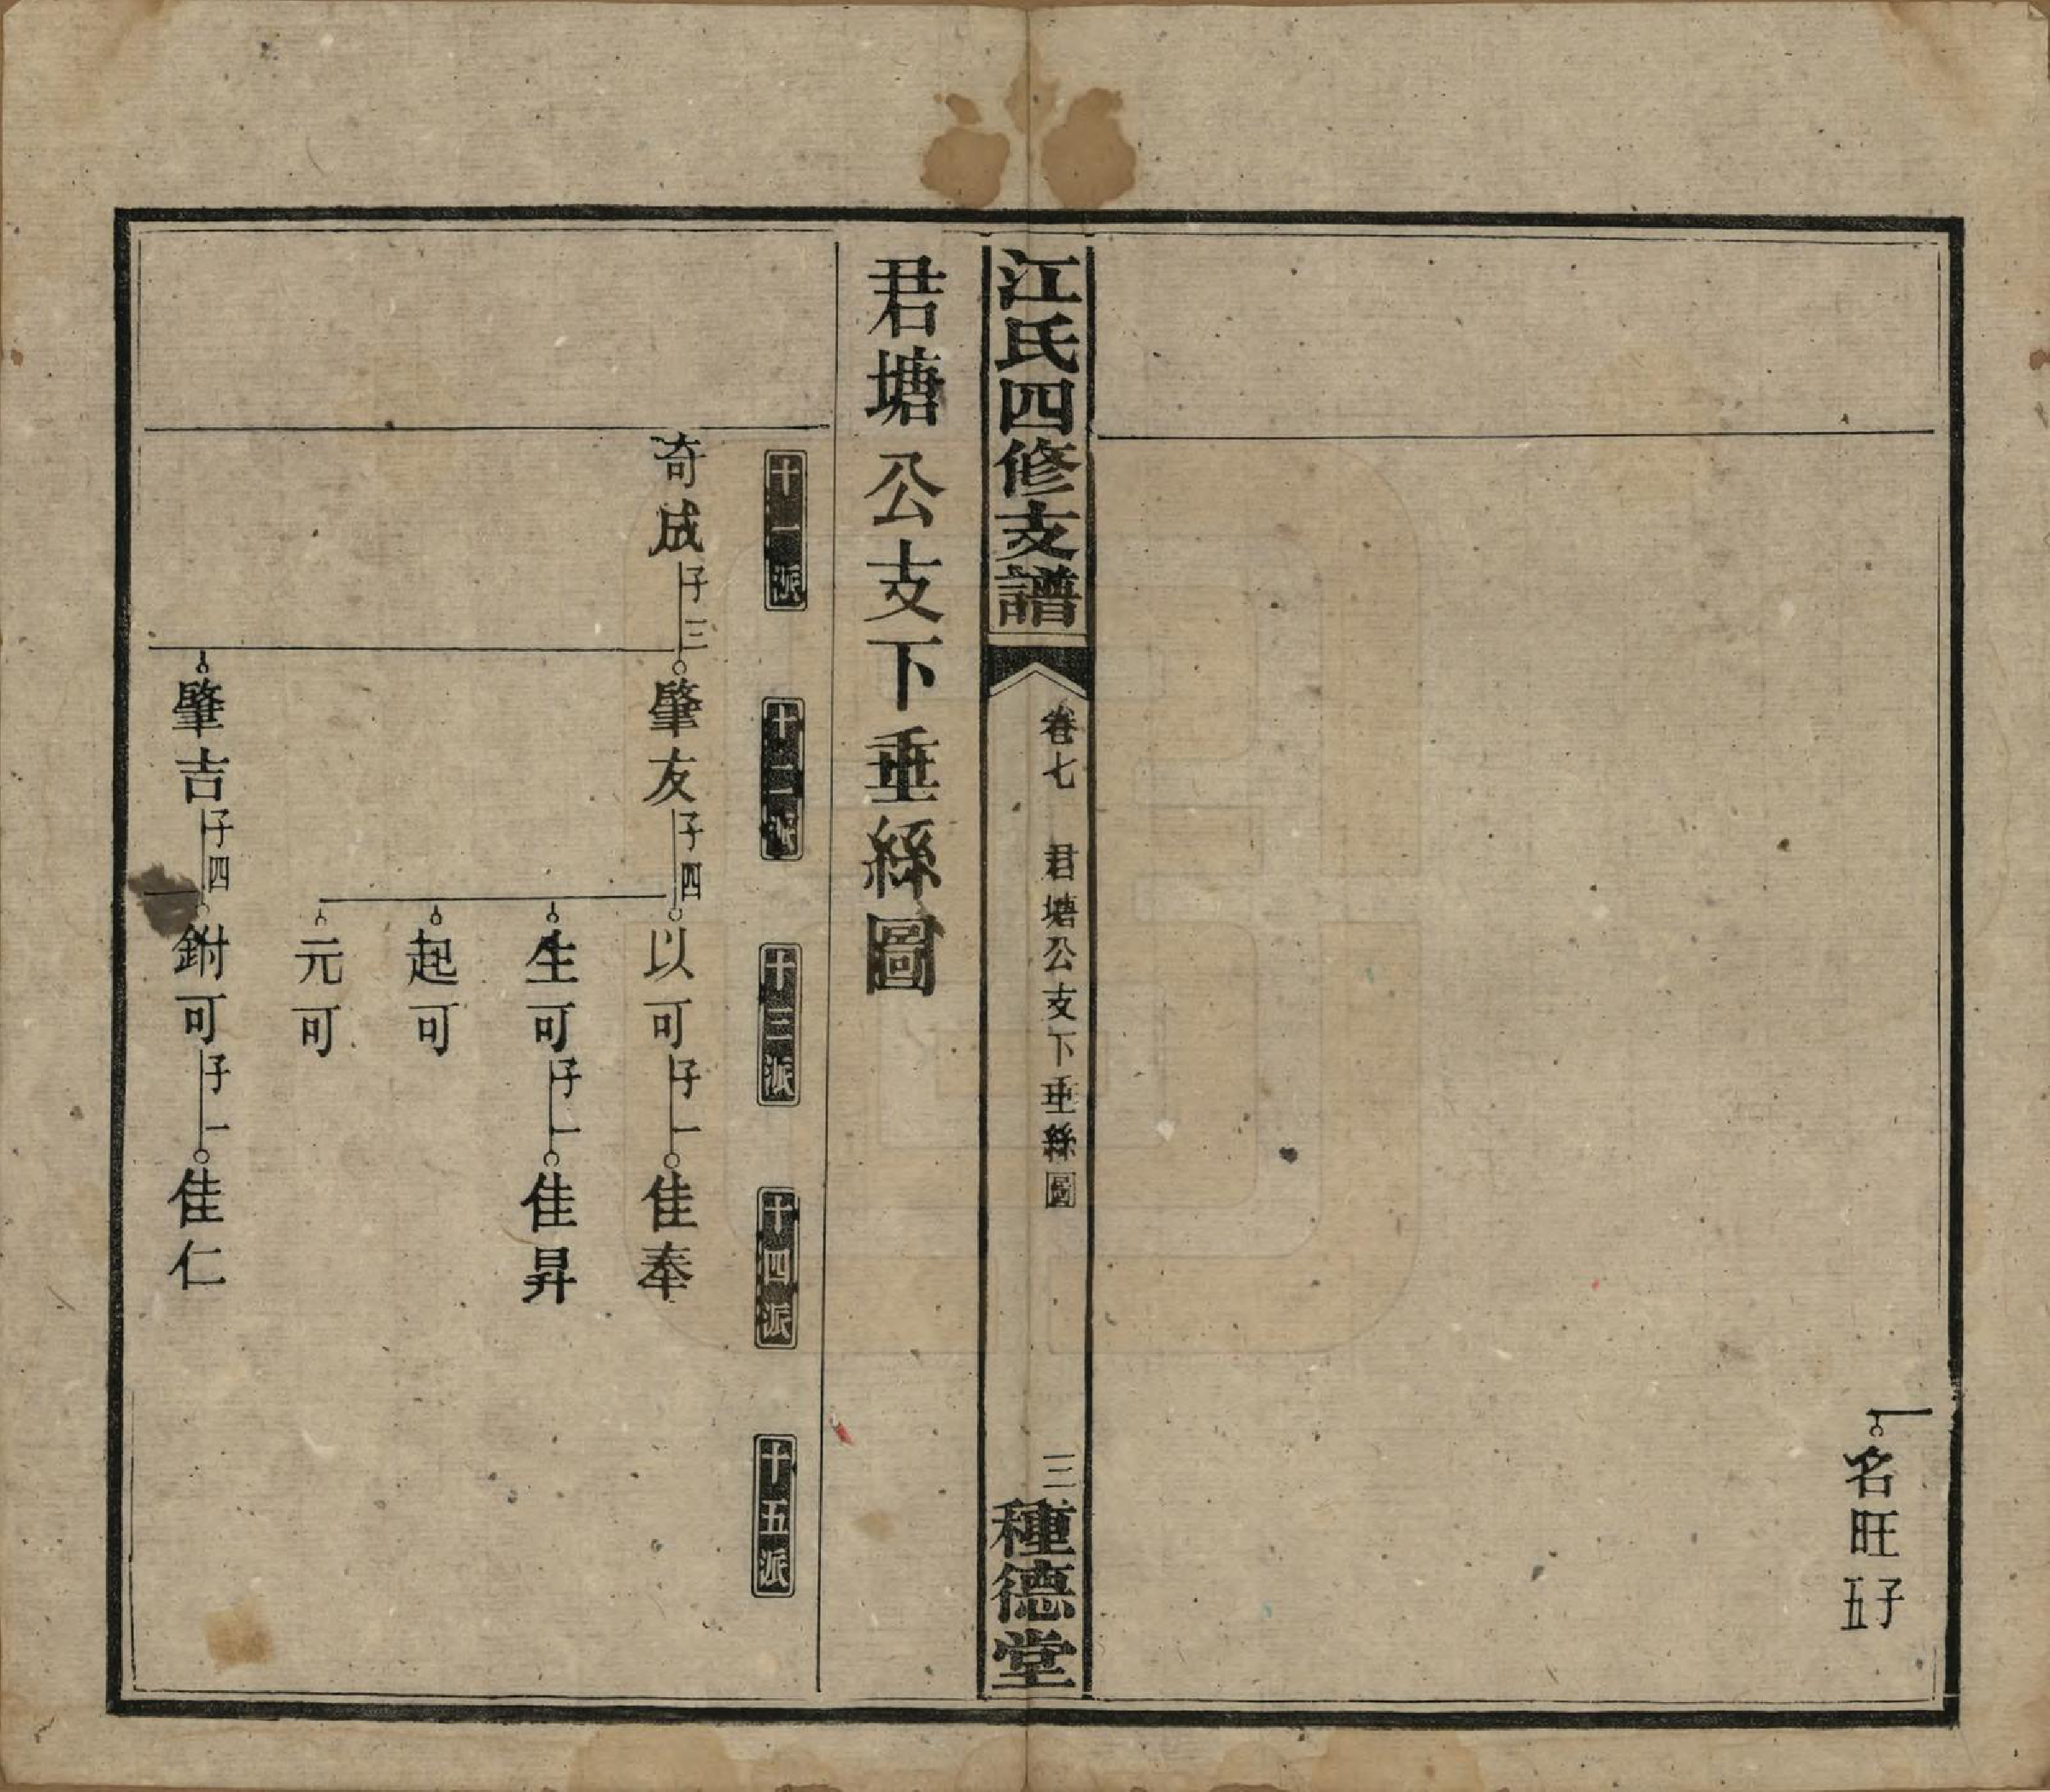 名旺子五
江氏四修支譜
卷七 君塘公支下垂絲圖
三
種德堂
君塘公支下垂絲圖
十一派
十二派
十三派
十四派
十五派
奇成子三
肇友子四
以可子一
佳奉
生可子一
佳昇
起可
元可
肇吉子四
可子一
佳仁